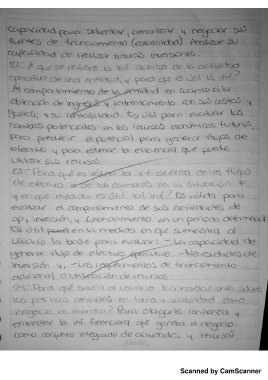 capacidad para solventar, amortizar y negociar sus
fuentes de financiamiento (estabilidad) Analizar su
capacidad de realizar futuras inversiones.
22- A que se refiere la inf. acerca de la actividad
operativa de una entidad, y para que es útil la inf?
Al comportamiento de la entidad en cuanto a la
obtención de ingresos y enfrentamiento con sus costos y
gastos, y su rentabilidad. Es útil para evaluar los
cambios potenciales en los recursos económicos futuros,
para predecir el potencial para generar flujos de
efectivo y para estimar la eficiencia que puede
utilizar sus recursos.
23- Para qué es válida la inf. acerca de los flujos
de efectivo o de los cambios en la situación F.,
y en que medida es útil tal inf? Es válida para
evaluar el comportamiento de sus actividades de
op, inversión, y financiamiento en un período determinado
Es útil en la medida en que suministra al
usuario la base para evaluar: - La capacidad de
generar flujo de efectivo operativo. - Necesidades de
inversión y, - Los requerimientos de financiamiento
adicional o utilización de recursos.
24- Para que sirven al usuario las sobre
las políticas contables en torno a viabilidad como
negocio en marcha? Para otorgarle confianza y
entender la inf. financiera que genera el negocio
como conjunto integrado de actividades y recursos
Scanned by CamScanner